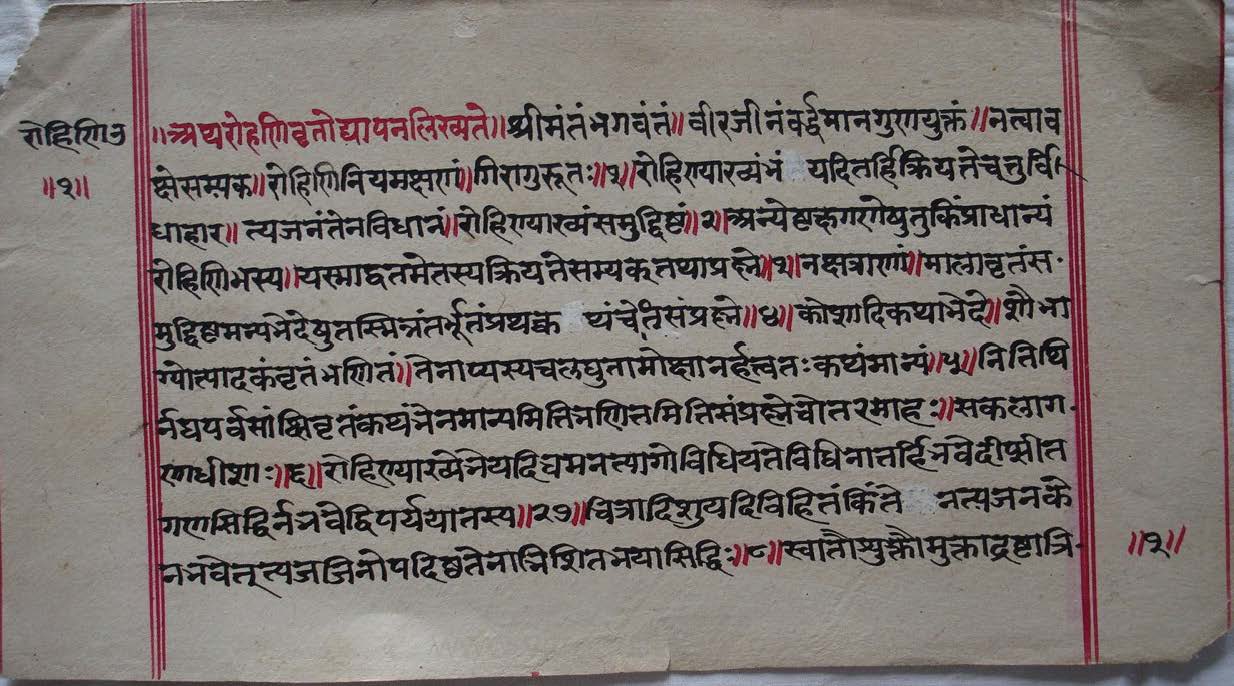 रोहिणिउ
॥१॥
॥अथरोहणिवृतोद्यापनलिख्यते॥श्रीमंतंभगवंतं॥वीरजीनंवर्द्धमानगुणयुक्तं॥नत्वाव
क्षेसम्यक॥रोहिणिनियमक्षणं॥गिरागुरूतः॥१॥रोहिण्याख्यंभं यदितर्हिक्रियतेचतुर्वि
धाहार॥त्यजनंतेनविधानं॥रोहिण्याख्यंसमुद्दिष्टं॥२॥अन्येष्टक्षगणेषुतुकिंप्राधान्यं
रोहिणिभस्य॥यस्माद्वतमेतस्यक्रियतेसम्यक्तथाप्रह्ने॥३॥नक्षत्राणां॥मालावृतंस
मुद्दिष्टमन्यभेदेषुतस्मिन्नंतर्भूतंप्रथक्क थंचेतिसंप्रह्ने॥४॥कोशादिकथाभेदे॥शौभा
ग्योत्पादकंवृतंभणितं॥तेनाप्यस्यचलघुतामोक्षानर्हत्वतःकथंमान्यं॥५॥नितिथि
र्नघपर्वसांक्षिवृतंकथंभेनमान्यमितिभणितमितिसंप्रह्नेचोतरमाहः॥सकलाग
णधीशाः॥६॥रोहिण्याख्येभेयदिघमनत्यागोविधियतेविधिनातर्हिभवेदीप्सीत
गणसिद्विर्नभवेद्विपर्ययातस्य॥२७॥चित्रादिशुयदिविहितंकिंते नत्यजनके
नभवेत्त्यजजिनोपदिष्ठतेनाभिशितभयासिद्विः॥८॥स्वातौशुक्तौमुक्ताद्रष्टात्रि
॥१॥